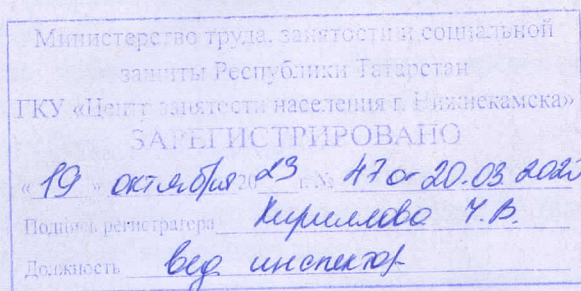 Министерство труда, занятости и социальной
защиты Республики Татарстан
ГКУ «Центр занятости населения г. Нижнекамска»
ЗАРЕГИСТРИРОВАНО
«19» октября 2023 г. № 47 от 20.03.
Подпись регистратора Кириллова Ч.В.
Должность вед инспектор